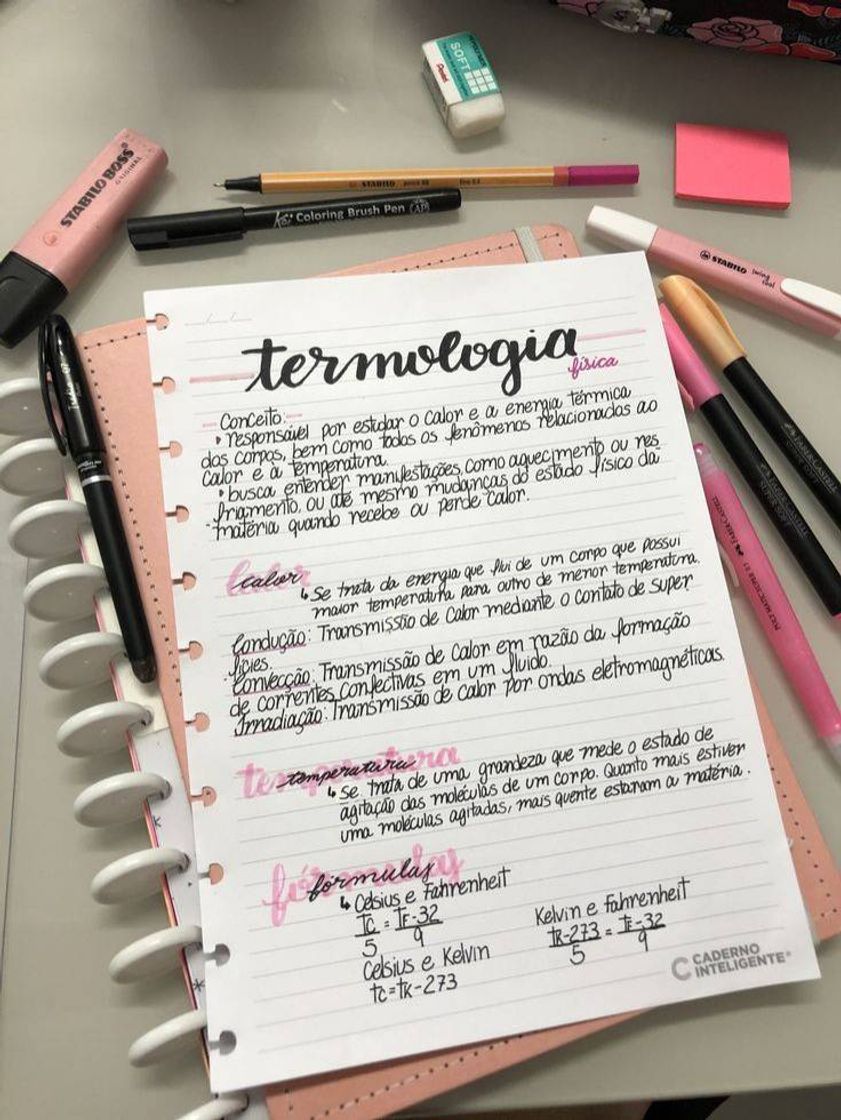 Pentel
SOFT
STABILO BOSS
ORIGINAL
STABILO point 88 fine 0.4
Koi Coloring Brush Pen AP
STABILO swing cool
termologia
física
Conceito:
• responsável por estudar o calor e a energia térmica
dos corpos, bem como todos os fenômenos relacionados ao
calor e à temperatura.
• busca entender manifestações, como aquecimento ou res
- friamento, ou até mesmo mudanças do estado físico da
matéria quando recebe ou perde calor.
calor calor
↳ Se trata da energia que flui de um corpo que possui
maior temperatura para outro de menor temperatura.
Condução: Transmissão de calor mediante o contato de super
- fícies.
Convecção: Transmissão de calor em razão da formação
de correntes confectivas em um fluido.
Irradiação: Transmissão de calor por ondas eletromagnéticas.
temperatura temperatura
↳ Se trata de uma grandeza que mede o estado de
agitação das moléculas de um corpo. Quanto mais estiver
uma moléculas agitadas, mais quente estaram a matéria.
fórmulas fórmulas
↳ Celsius e Fahrenheit
Tc = TF-32
5 9
Celsius e Kelvin
tc=tk-273
Kelvin e Fahrenheit
tk-273 = tF-32
5 9
CADERNO
INTELIGENTE®
FABER-CASTELL
K
*